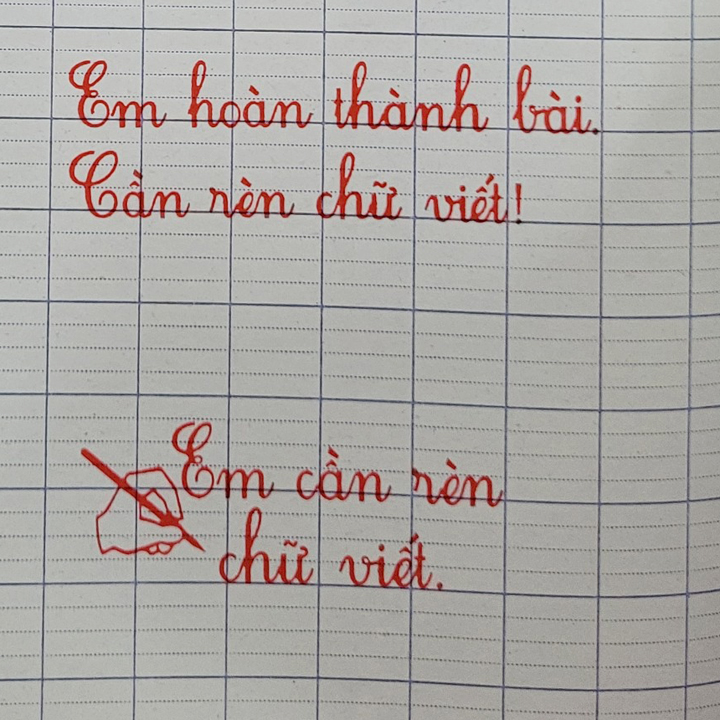 Em hoàn thành bài.
Cần rèn chữ viết!
Em cần rèn
chữ viết.